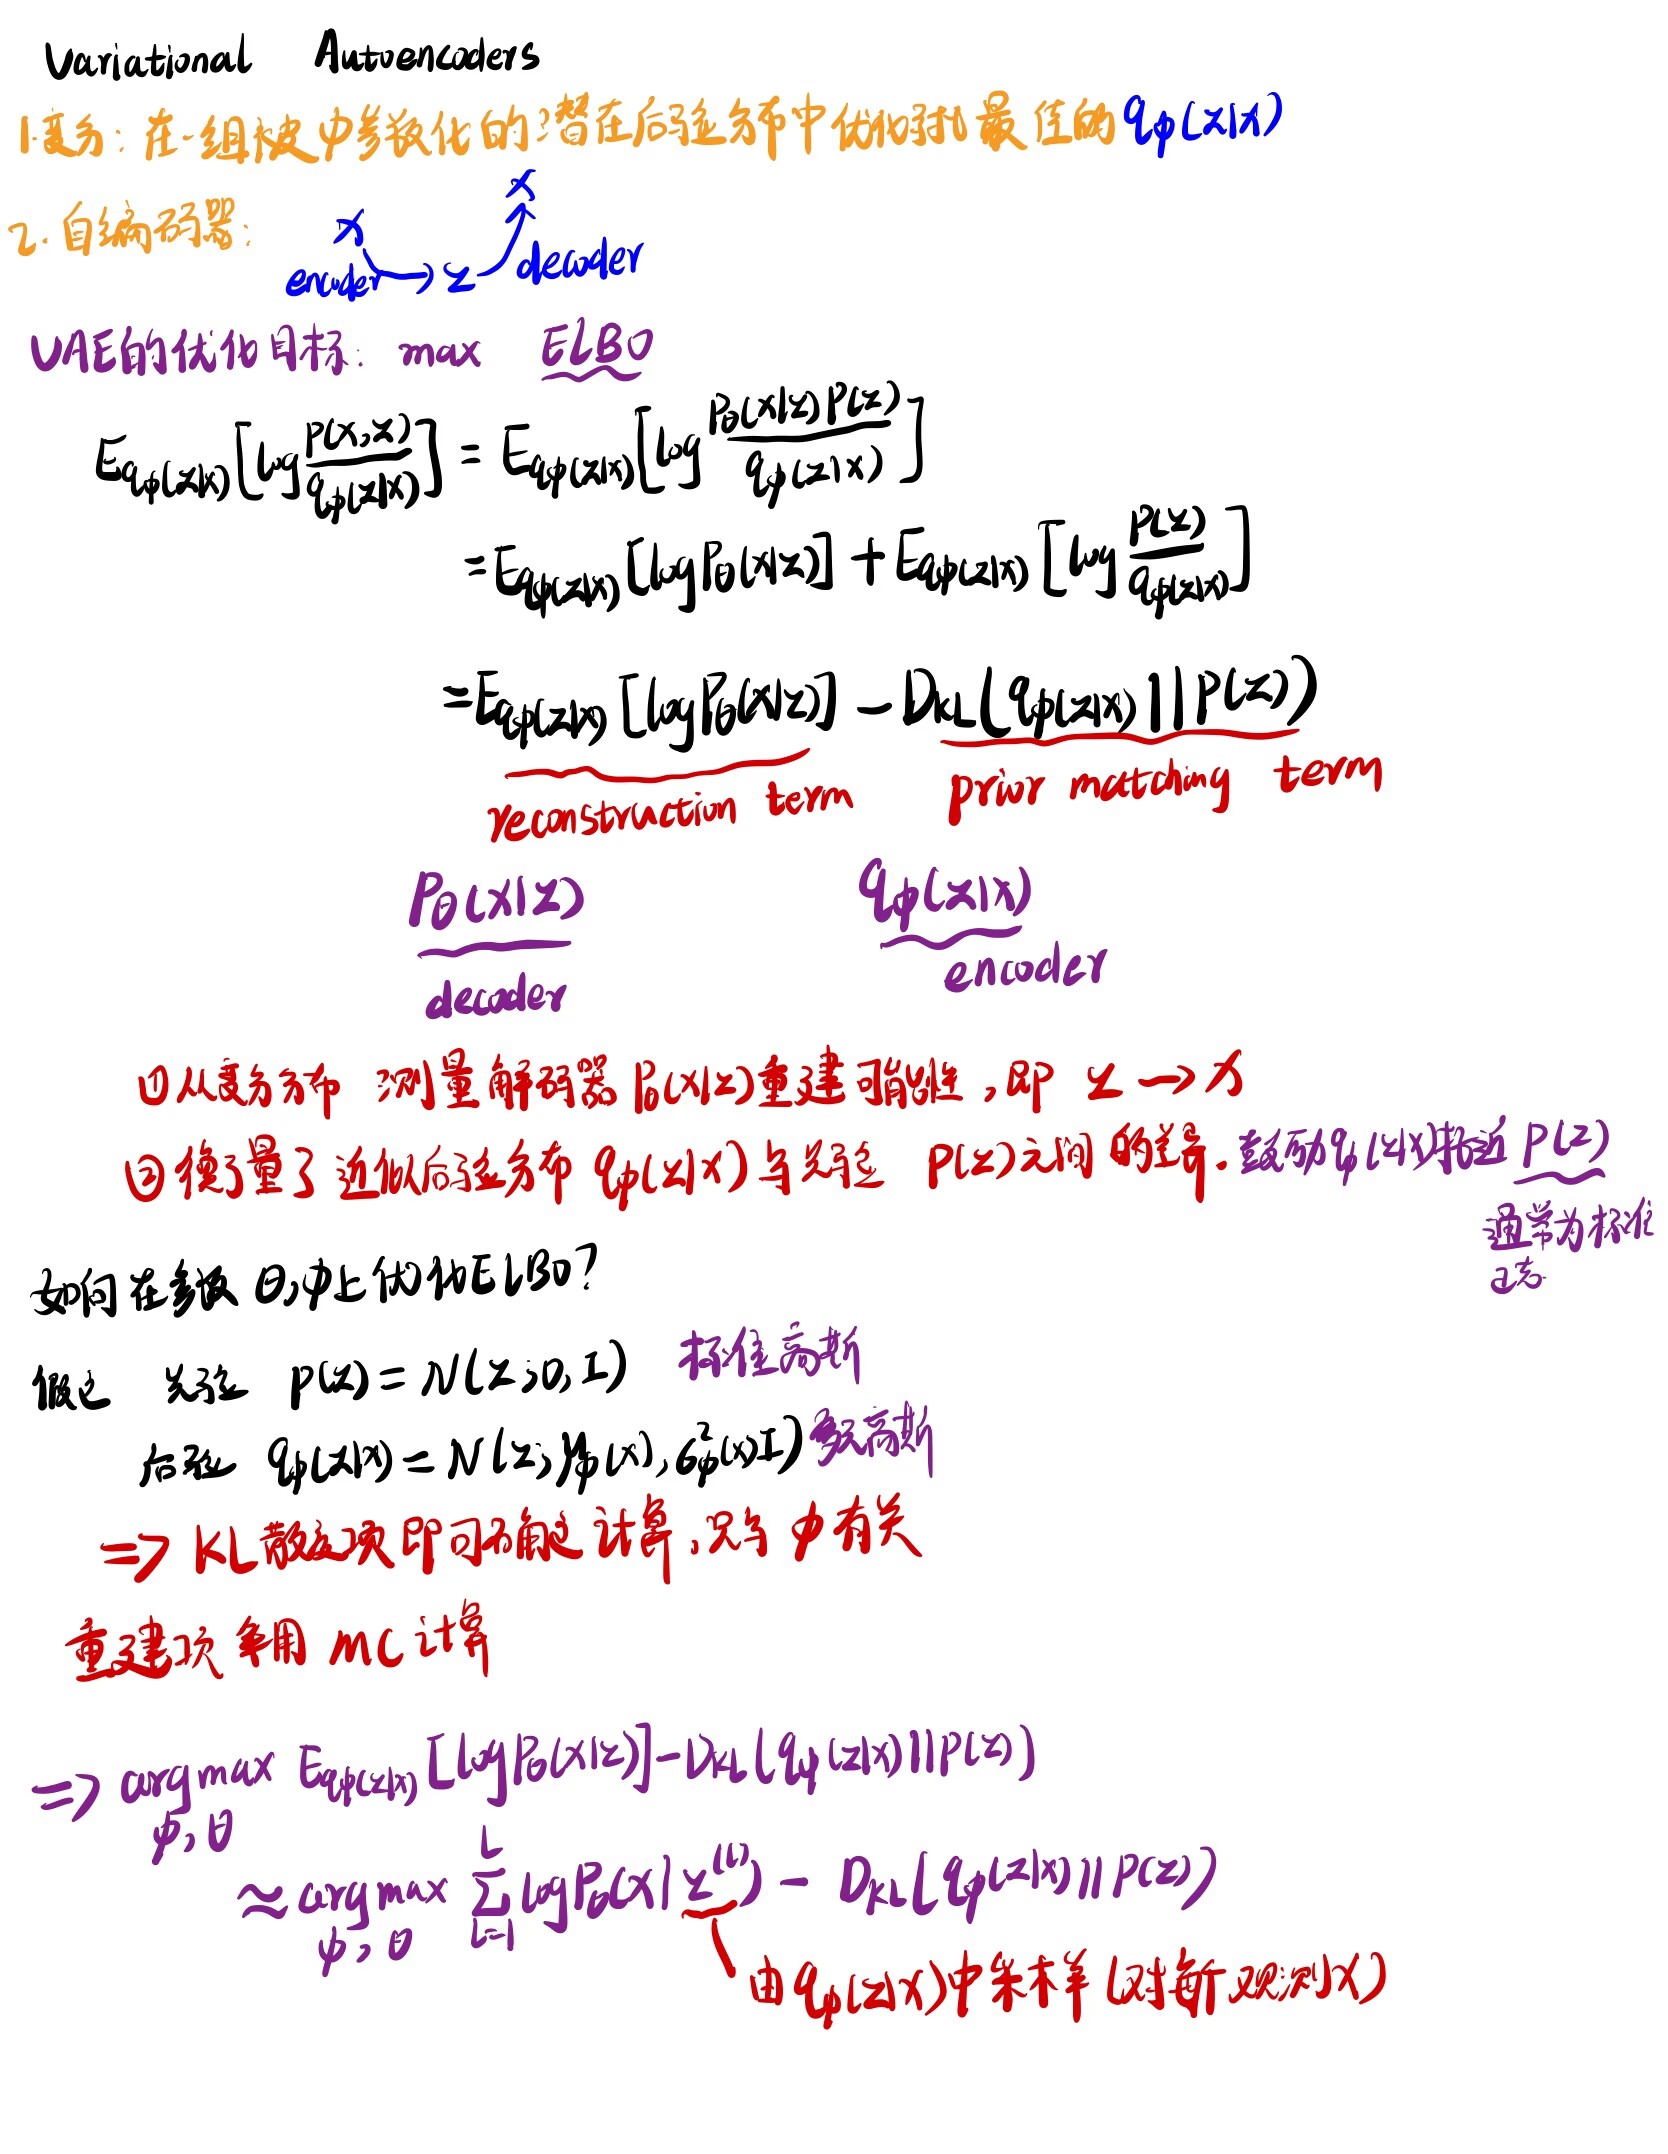 Variational Autoencoders
1.变分：在一组被φ参数化的潜在后验分布中优化寻找最佳的 qφ(z|x)
2.自编码器：
x encoder → z decoder x
VAE的优化目标：max ELBO
E_{qφ(z|x)}[log p(x,z)/qφ(z|x)] = E_{qφ(z|x)}[log Pθ(x|z)P(z)/qφ(z|x)]
= E_{qφ(z|x)}[log Pθ(x|z)] + E_{qφ(z|x)}[log P(z)/qφ(z|x)]
= E_{qφ(z|x)}[log Pθ(x|z)] − D_{KL}(qφ(z|x)||P(z))
reconstruction term prior matching term
Pθ(x|z) qφ(z|x)
decoder encoder
①从变分分布 测量解码器 Pθ(x|z)重建可能性，即 z → x
②衡量了近似后验分布 qφ(z|x)与先验 P(z)之间的差异．鼓励qφ(z|x)接近 P(z)
通常为标准
正态.
如何在参数 θ,φ上优化ELBO?
假定 先验 p(z) = N(z;0,I) 标准高斯
后验 qφ(z|x) = N(z;μφ(x),σ²φ(x)I) 多元高斯
=> KL散度项即可确定计算，只与φ有关
重建项 用 MC计算
=> argmax_{φ,θ} E_{qφ(z|x)}[log Pθ(x|z)] − D_{KL}(qφ(z|x)||P(z))
≈ argmax_{φ,θ} Σ_{l=1}^{L} log Pθ(x|z^{(l)}) − D_{KL}(qφ(z|x)||P(z))
由 qφ(z|x)中采样(对每个观测x)